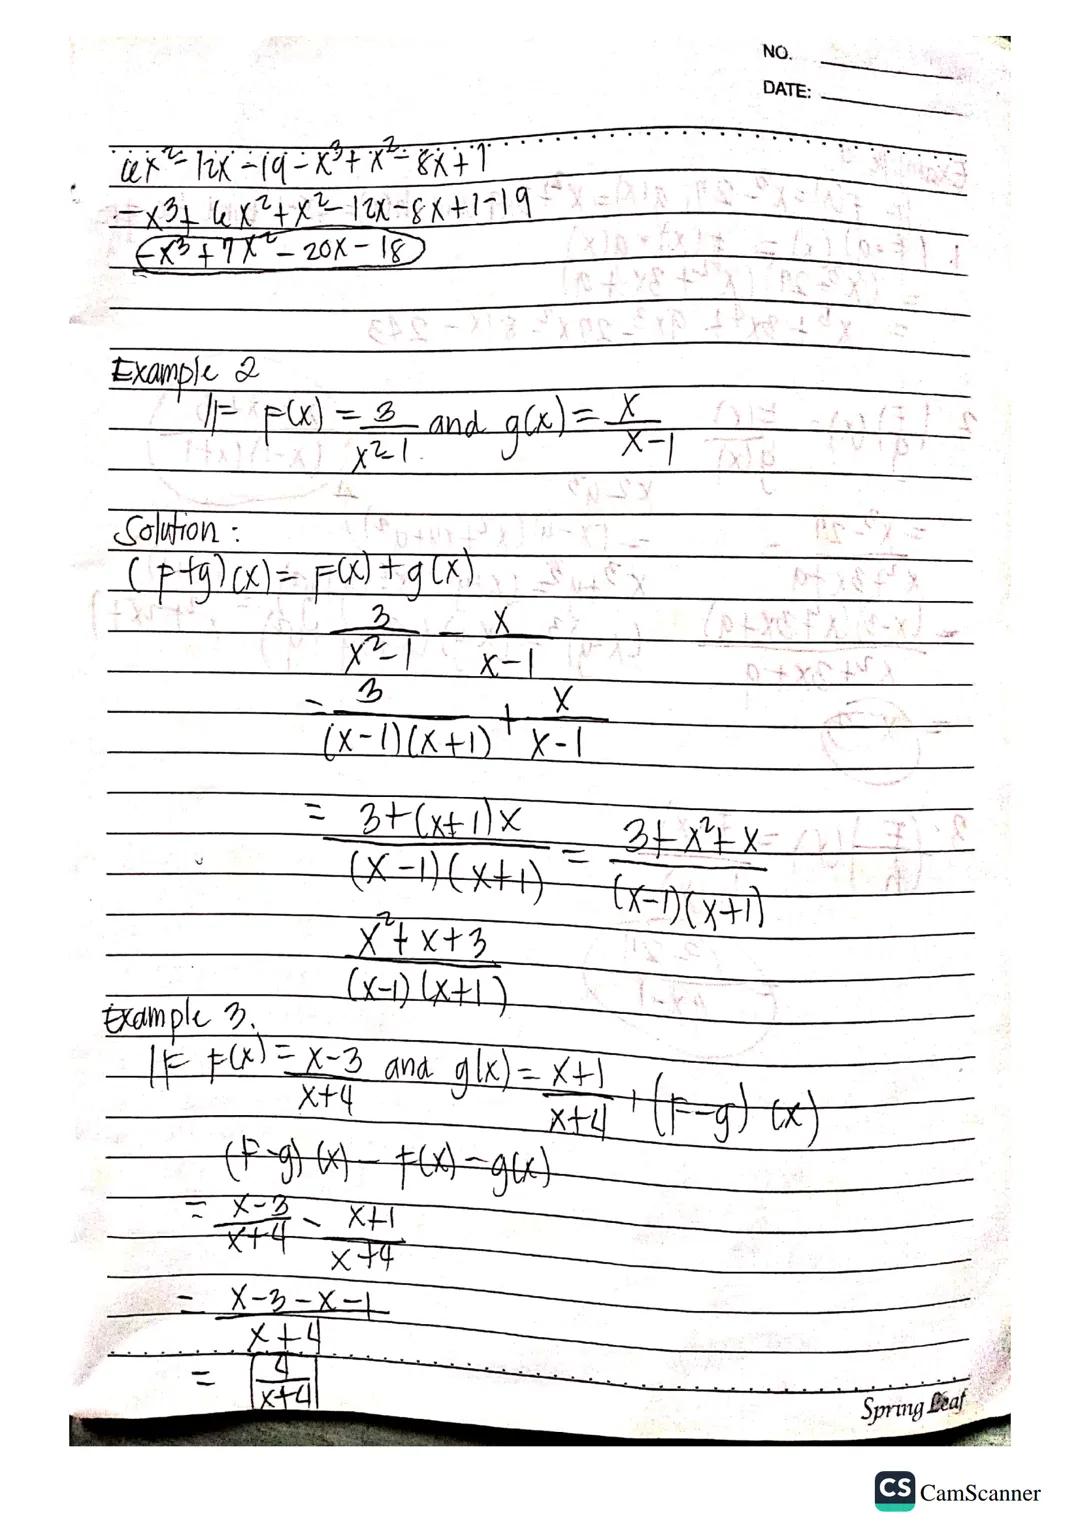 NO.
DATE:
6x² - 12x - 19 - x³ + x² - 8x + 1
- x³ + 6x² + x² - 12x - 8x + 1 - 19
- x³ + 7x² - 20x - 18
Example 2
IF F(x) = 3/(x²-1) and g(x) = x/(x-1)
Solution:
(F+g)(x) = F(x) + g(x)
3/(x²-1) - x/(x-1)
= 3/((x-1)(x+1)) + x/(x-1)
= (3+(x+1)x)/((x-1)(x+1)) = (3+x²+x)/((x-1)(x+1))
(x²+x+3)/((x-1)(x+1))
Example 3.
IF F(x) = (x-3)/(x+4) and g(x) = (x+1)/(x+4), (F-g)(x)
(F-g)(x) - F(x) - g(x)
= (x-3)/(x+4) - (x+1)/(x+4)
= (x-3-x-1)/(x+4)
= 4/(x+4)
Spring Leaf
CS CamScanner